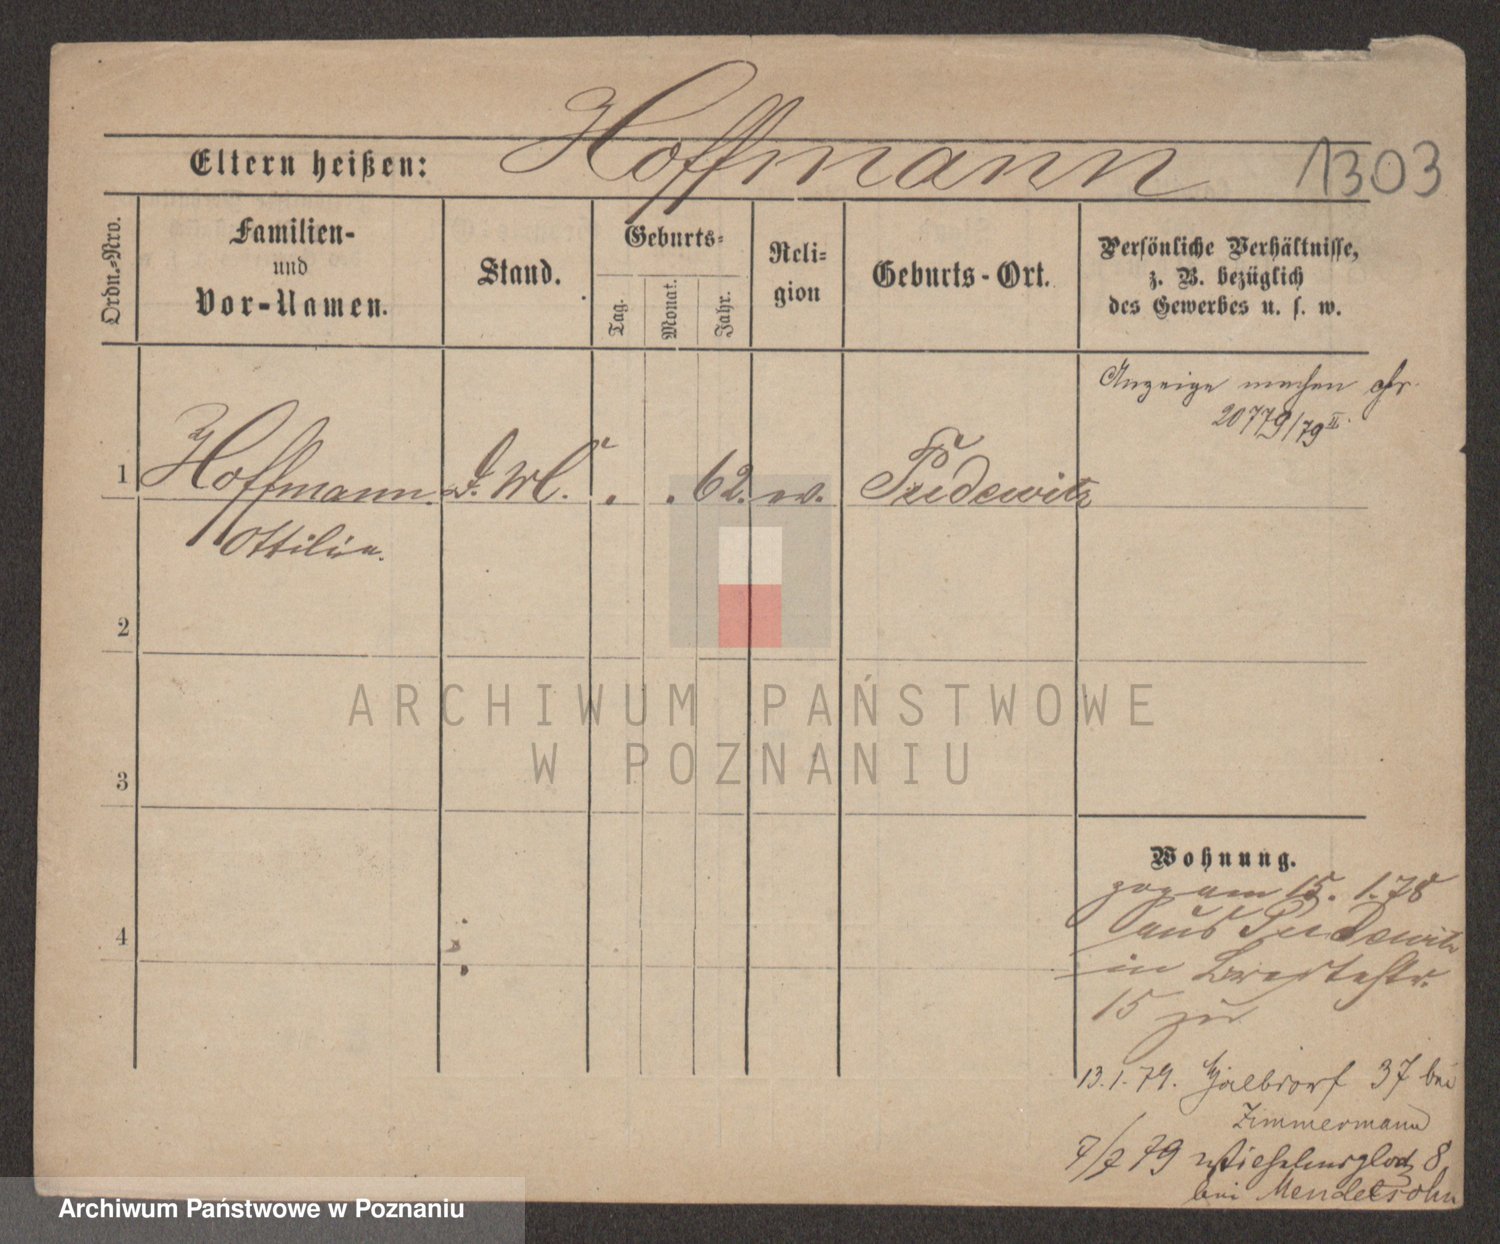 Hoffmann
Eltern heißen:
1303
Ordn.-Nro.
Familien-
und
Vor-Namen.
Stand.
Geburts-
Tag.
Monat.
Jahr.
Reli-
gion
Geburts-Ort.
Persönliche Verhältnisse,
z. B. bezüglich
des Gewerbes u. s. w.
Anzeige machen
20779/79 II.
1 Hoffmann . . 62. Pudewitz
Ottilie.
2
3
4
ARCHIWUM PAŃSTWOWE
W POZNANIU
Wohnung.
zog am 15. 1. 78
aus Pudewitz
in Breitestr.
15 zu
13.1.79. Halbdorf 37 bei
Zimmermann
7/7 79 8
bei Mendelsohn
Archiwum Państwowe w Poznaniu